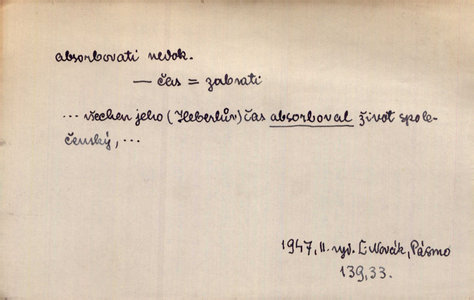 absorbovati nedok.
— čas = zabrati
... všechen jeho (Heberlův) čas absorboval život spole-
čenský, ...
1947, II. vyd. L. Novák, Pásmo
139, 33.